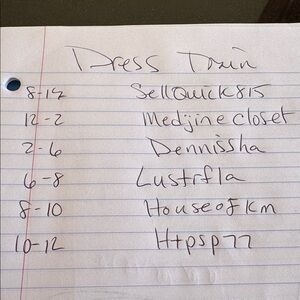 Dress Train
8-12 SellQuick815
12-2 Medjine closet
2-6 Dennissha
6-8 Lustrfla
8-10 HouseofKm
10-12 Htpsp77